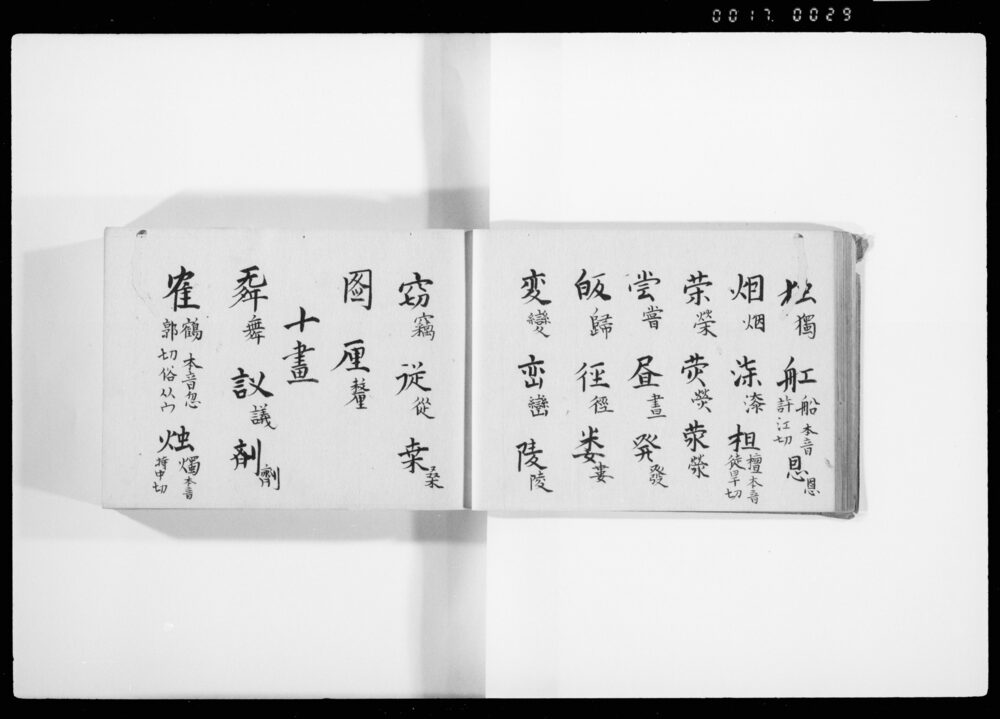 0017 0029
独獨 舡船本音許江切 恖恩
烟烟 㓒漆 担檀本音徒旱切
荣榮 荧熒 荥滎
尝嘗 昼晝 発發
皈歸 径徑 娄婁
変變 峦巒 陵陵
窃竊 従從 桒桑
图 厘釐
十畫
䍢舞 议議 剤劑
隺鶴本音忽郭切俗从宀 烛燭本音持中切